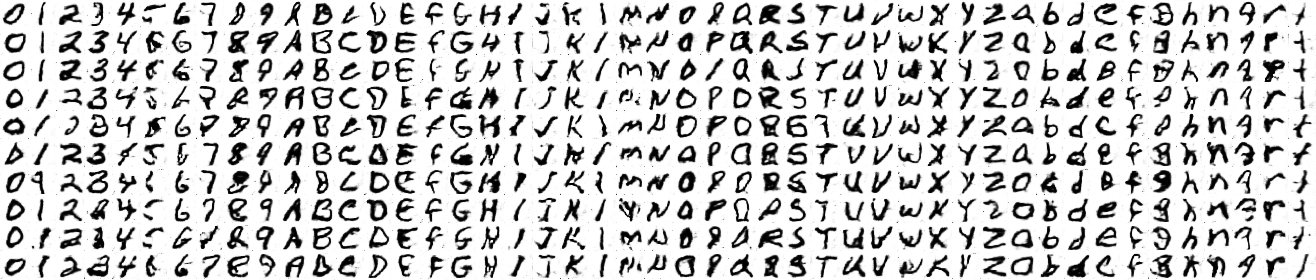 0 1 2 3 4 5 6 7 8 9 A B C D E f G H I J K l m N O P Q R S T U V W X Y Z a b d e f g h n q r t
0 1 2 3 4 5 6 7 8 9 A B C D E f G H I J K l m N O P Q R S T U V W X Y Z a b d e f g h n q r t
0 1 2 3 4 5 6 7 8 9 A B C D E f G H I J K l m N O P Q R S T U V W X Y Z a b d e f g h n q r t
0 1 2 3 4 5 6 7 8 9 A B C D E f G H I J K l m N O P Q R S T U V W X Y Z a b d e f g h n q r t
0 1 2 3 4 5 6 7 8 9 A B C D E f G H I J K l m N O P Q R S T U V W X Y Z a b d e f g h n q r t
0 1 2 3 4 5 6 7 8 9 A B C D E f G H I J K l m N O P Q R S T U V W X Y Z a b d e f g h n q r t
0 1 2 3 4 5 6 7 8 9 A B C D E f G H I J K l m N O P Q R S T U V W X Y Z a b d e f g h n q r t
0 1 2 3 4 5 6 7 8 9 A B C D E f G H I J K l m N O P Q R S T U V W X Y Z a b d e f g h n q r t
0 1 2 3 4 5 6 7 8 9 A B C D E f G H I J K l m N O P Q R S T U V W X Y Z a b d e f g h n q r t
0 1 2 3 4 5 6 7 8 9 A B C D E f G H I J K l m N O P Q R S T U V W X Y Z a b d e f g h n q r t